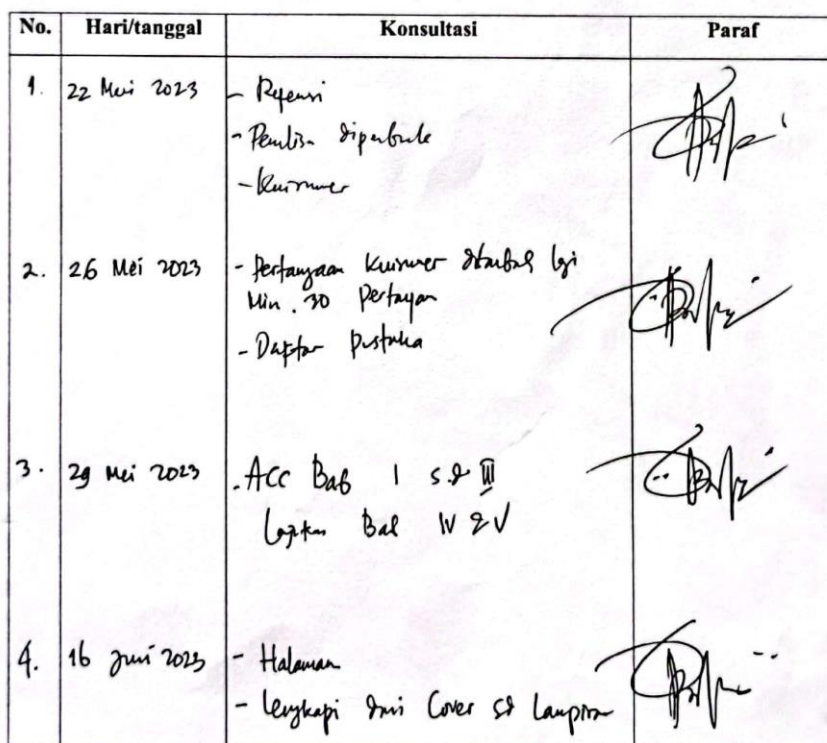 No. Hari/tanggal Konsultasi Paraf
1. 22 Mei 2023 - Referensi
- Penulisan diperbaiki
- Kuisioner
2. 26 Mei 2023 - Pertanyaan Kuisioner ditambah lagi
Min. 30 Pertanyaan
- Daftar pustaka
3. 29 Mei 2023 . ACC Bab I s.d III
Lanjutkan Bab IV & V
4. 16 Juni 2023 - Halaman
- Lengkapi dari Cover sd Lampiran